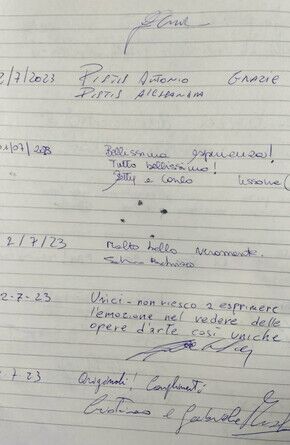 2/7/2023 PISTIS ANTONIO GRAZIE
PISTIS ALESSANDRA
01/07/2023 Bellissima esperienza!
Tutto bellissimo!
Betty e Carlo
2/7/23 Molto bello veramente.
2-7-23 Unici - non riesco a esprimere
l'emozione nel vedere delle
opere d'arte così uniche
7-23 Originali! Complimenti
Cristina e Gabriele